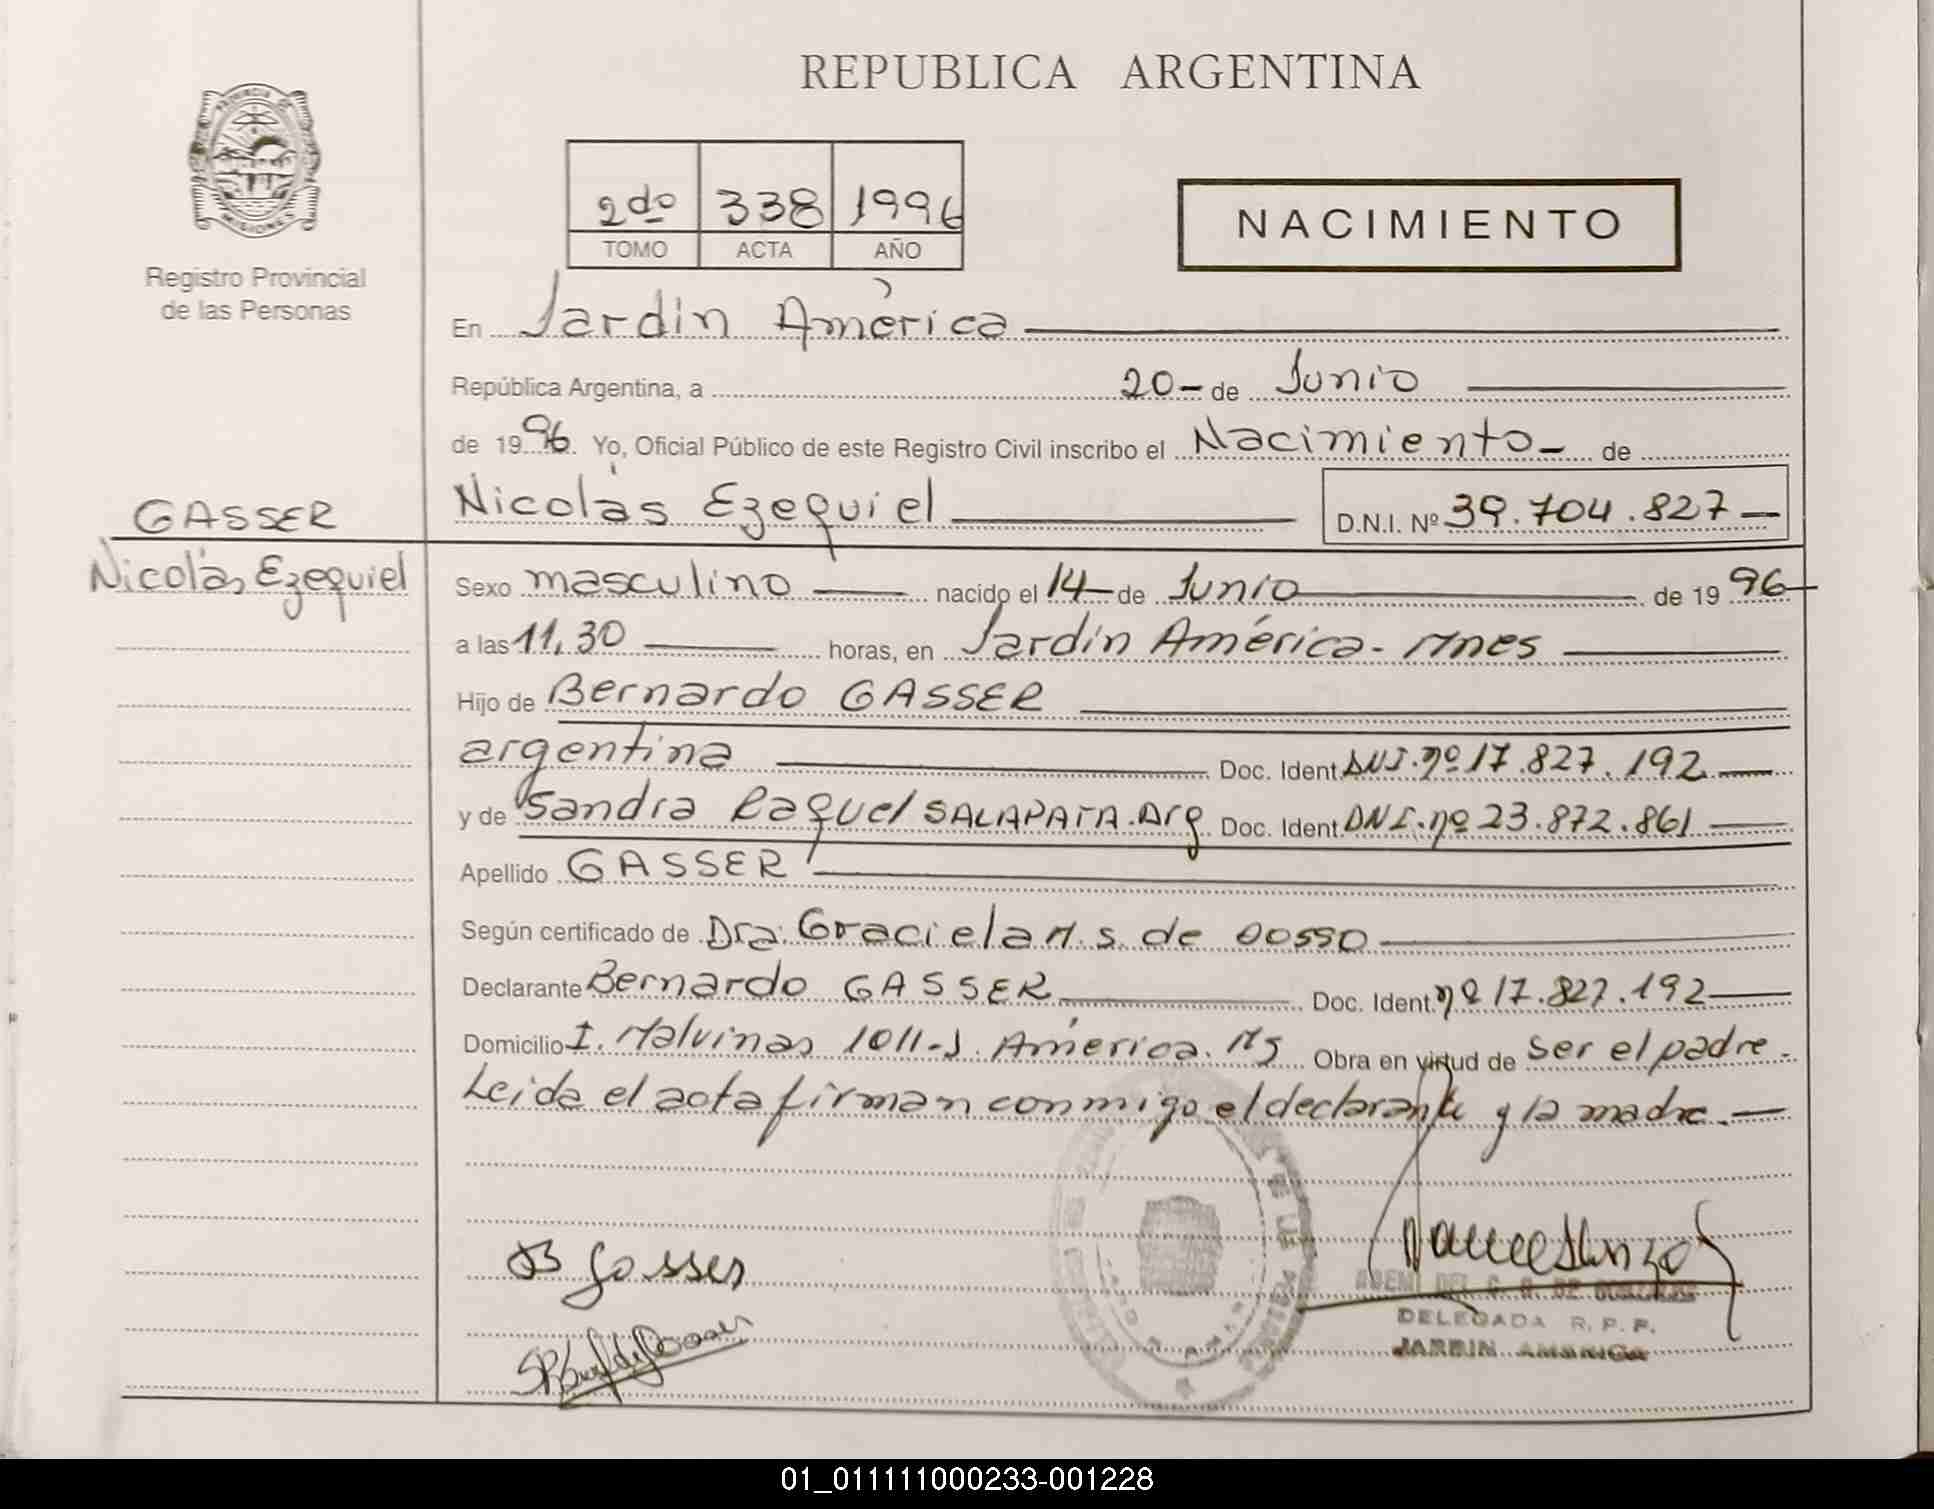 REPUBLICA ARGENTINA
PROVINCIA DE
MISIONES
Registro Provincial
de las Personas
2do 338 1996
TOMO ACTA AÑO
NACIMIENTO
En Jardín América
República Argentina, a 20 - de Junio
de 1996. Yo, Oficial Público de este Registro Civil inscribo el Nacimiento - de
GASSER
Nicolás Ezequiel
Nicolás Ezequiel D.N.I. Nº 39.704.827 -
Sexo masculino nacido el 14 - de Junio de 1996 -
a las 11,30 horas, en Jardín América - Mnes
Hijo de Bernardo GASSER
argentina Doc. Ident. DNI. nº 17.827.192
y de Sandra Raquel SALAPATA. Arg Doc. Ident. DNI. nº 23.872.861
Apellido GASSER
Según certificado de Dra. Graciela M. S. de DOSSO
Declarante Bernardo GASSER Doc. Ident. nº 17.827.192
Domicilio I. Malvinas 1011 - J. América. Ms Obra en virtud de ser el padre.
Leida el acta firman conmigo el declarante y la madre. -
B Gasser
DELEGADA R.P.P.
JARDIN AMERICA
01_011111000233-001228